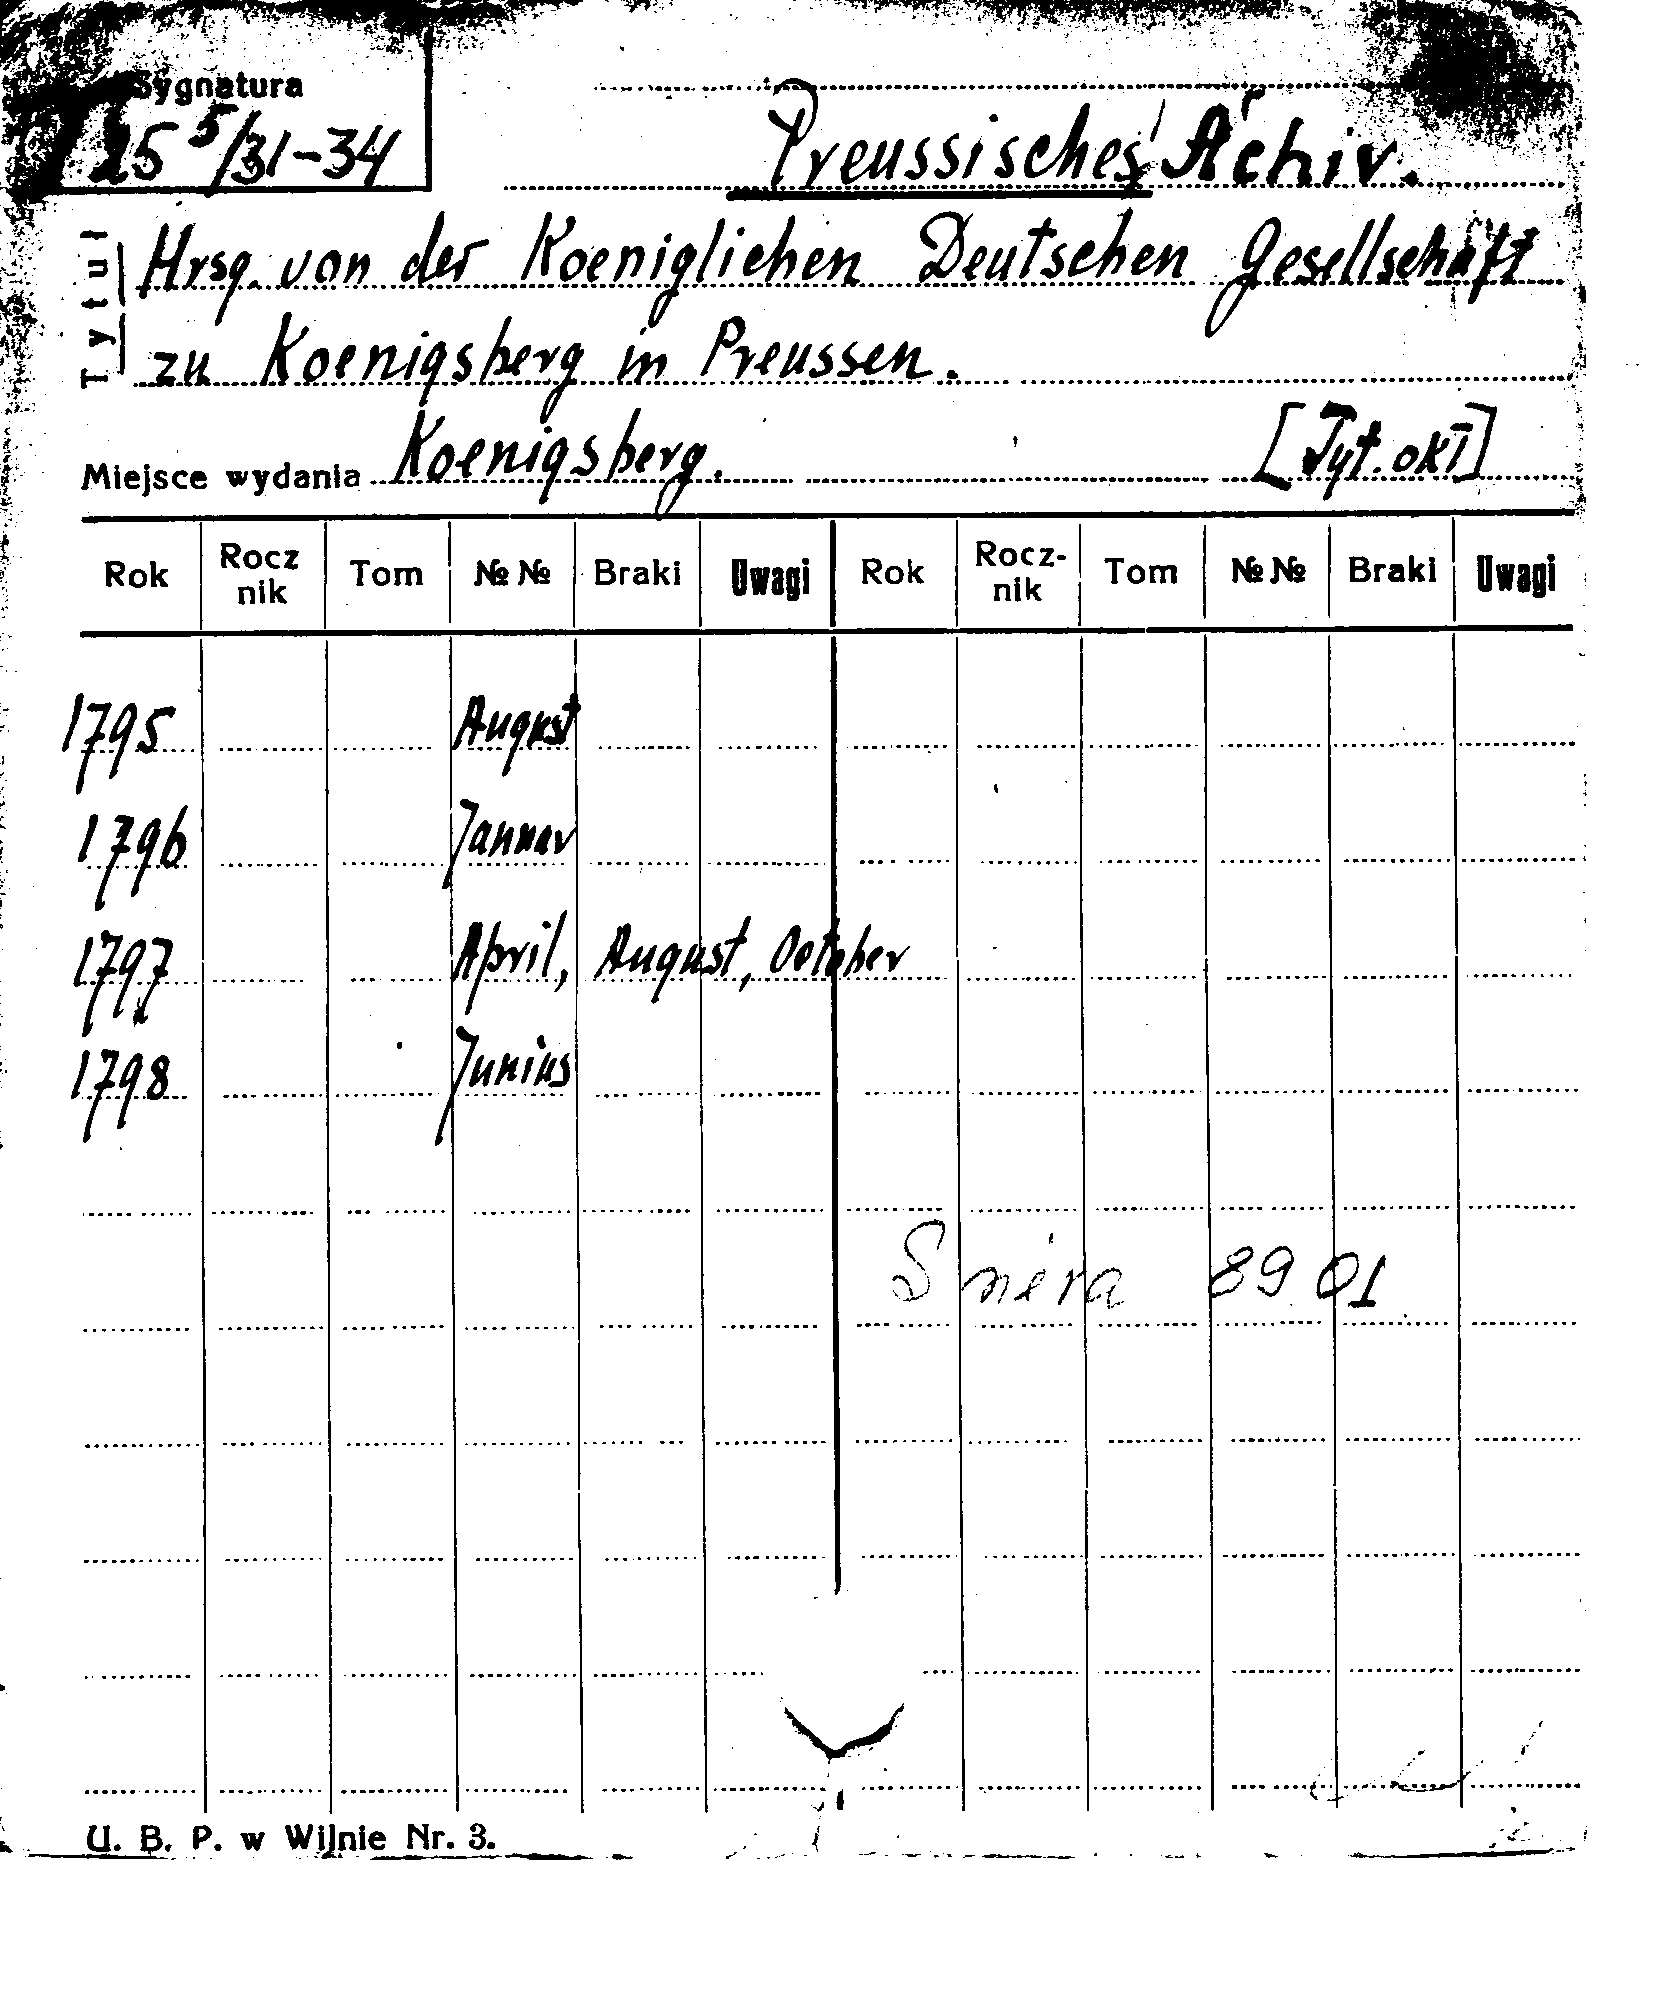 Sygnatura
25 5/31-34
Preussisches Achiv.
Tytuł
Hrsg. von der Koeniglichen Deutschen Gesellschaft
zu Koenigsberg in Preussen.
Miejsce wydania Koenigsberg. [Tyt. okł]
Rok Rocz nik Tom №№ Braki Uwagi Rok Rocz- nik Tom №№ Braki Uwagi
1795 August
1796 Januar
1797 April, August, October
1798 Junius
89 01
U. B. P. w Wilnie Nr. 3.